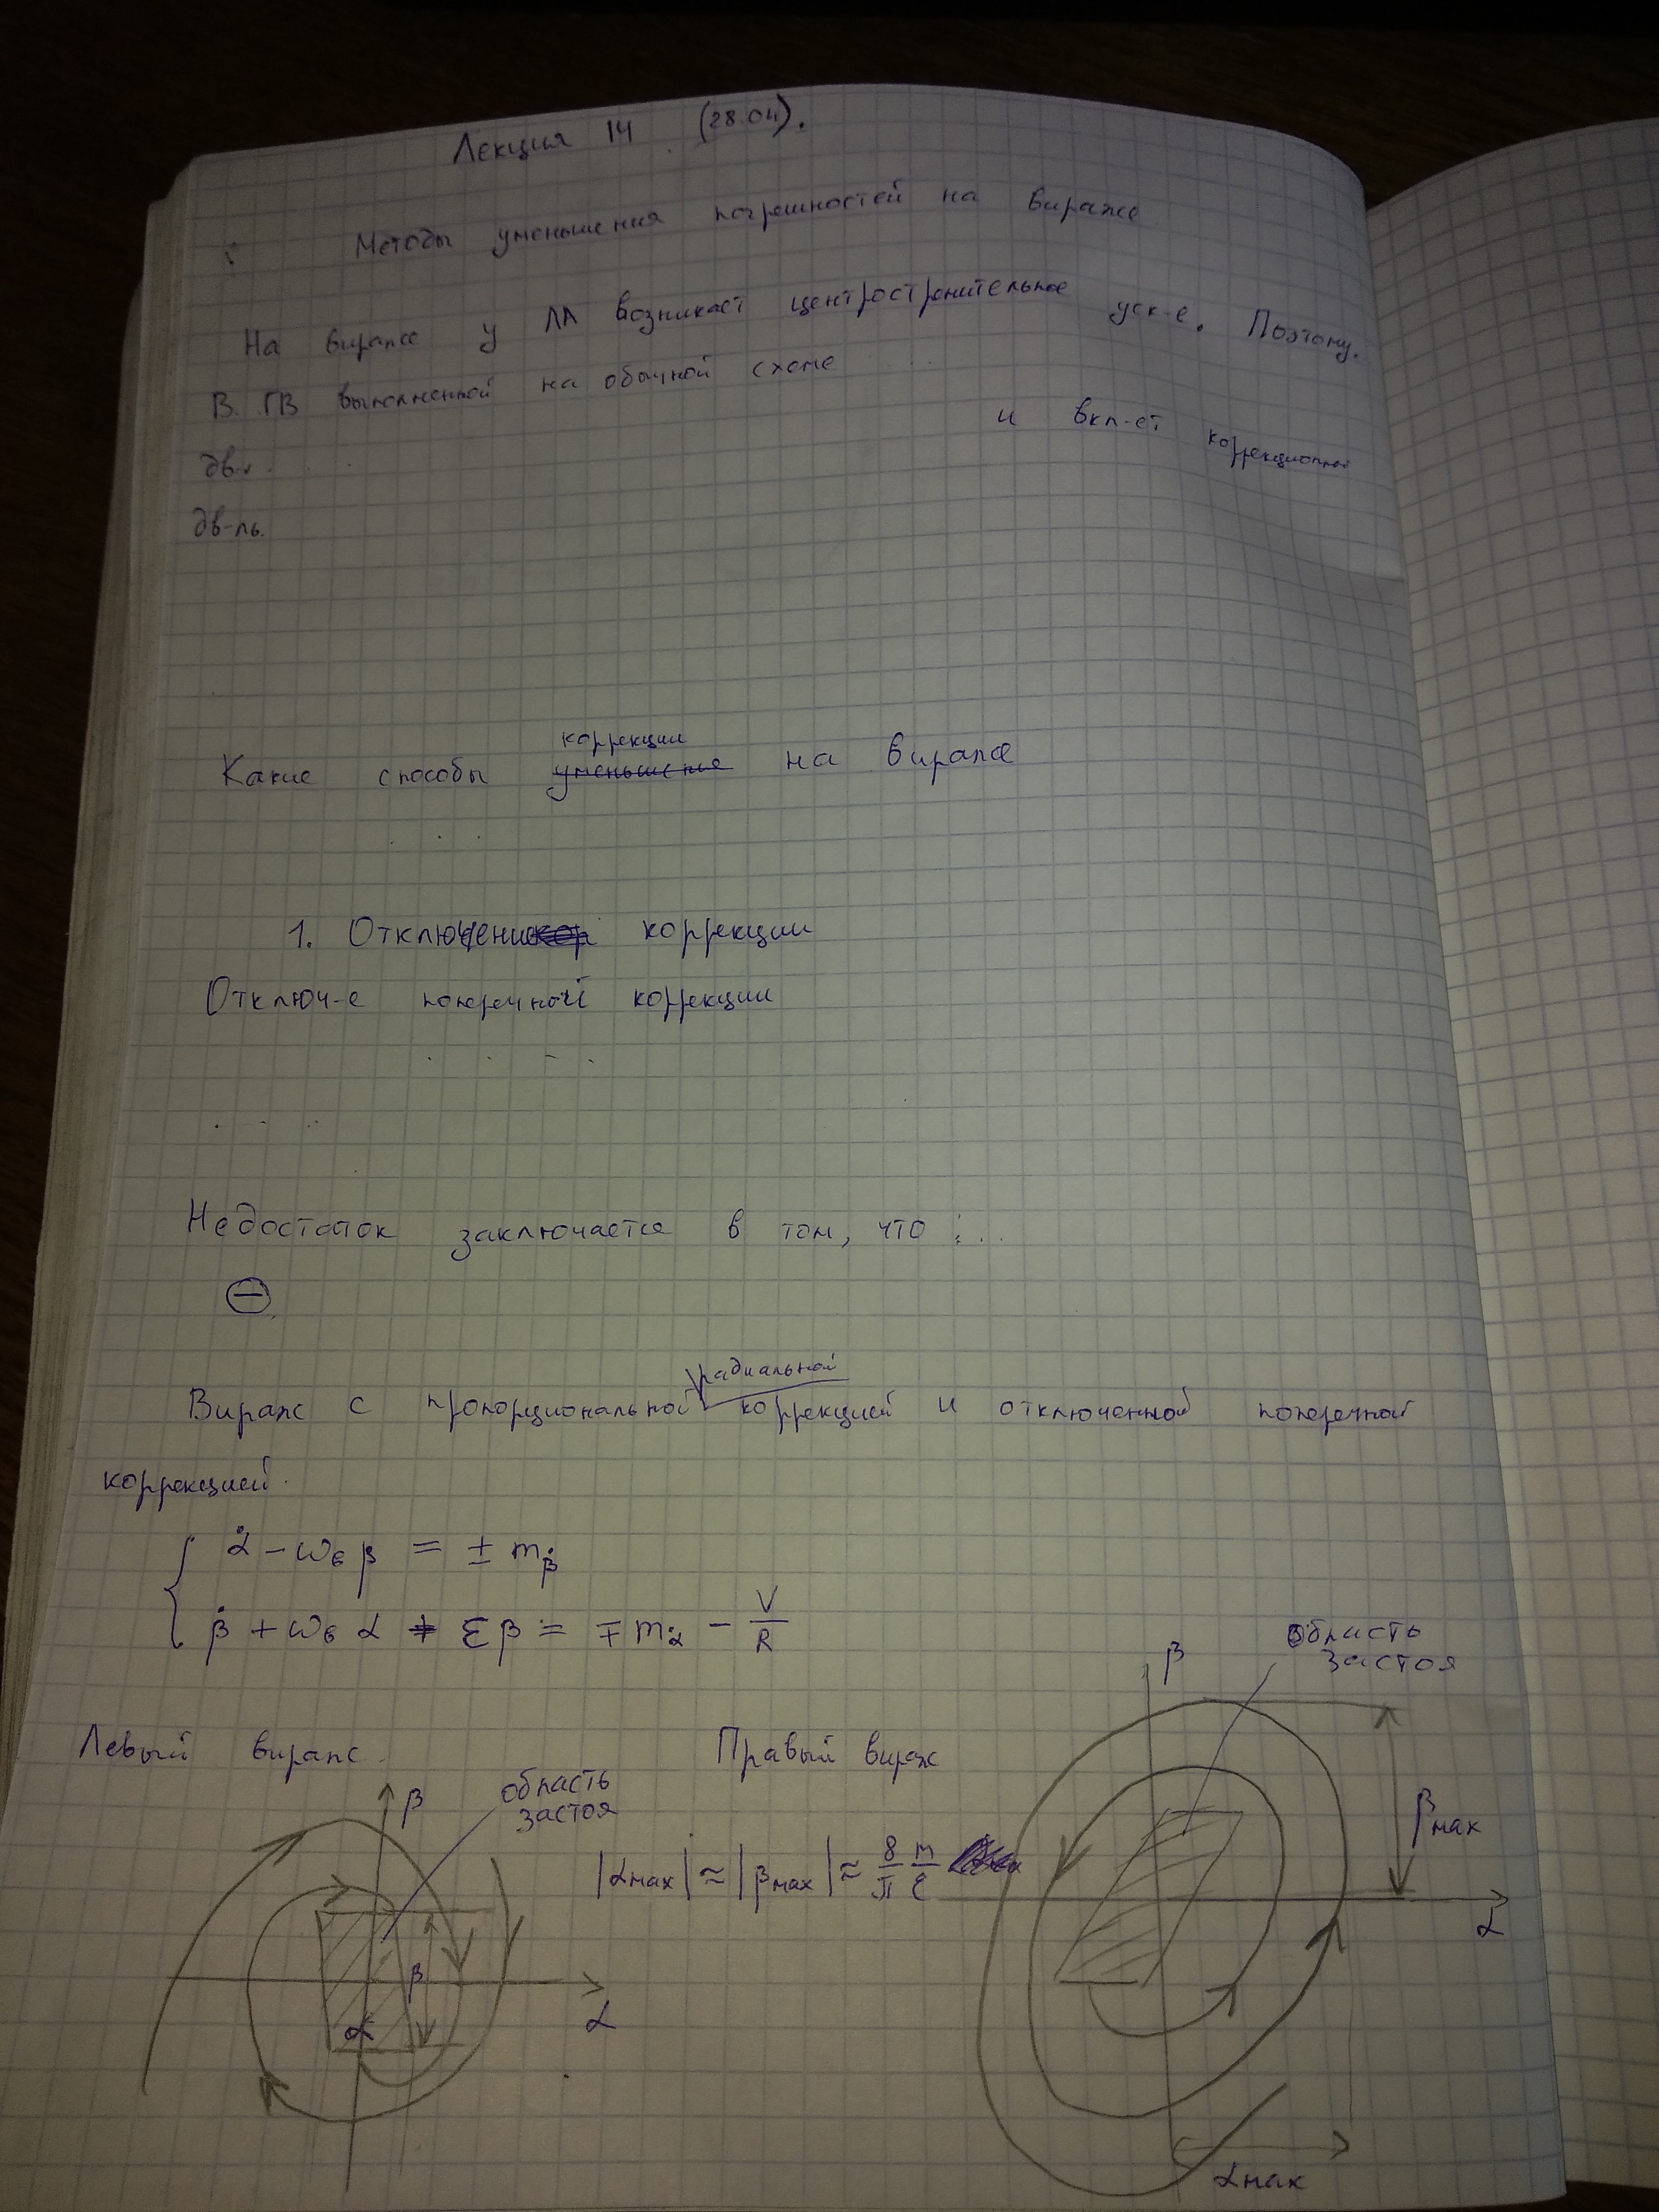 Лекция 14 (28.04).
Методы уменьшения погрешностей на вираже
На вираже у ЛА возникает центростремительное уск-е. Поэтому.
В ГВ выполненной на обычной схеме ....
и вкл-ет коррекционный
дв.
дв-ль.
коррекции
Какие способы уменьшения на вираже
1. Отключение коррекции
Отключ-е поперечной коррекции
Недостаток заключается в том, что : ...
⊖
радиальной
Вираж с пропорциональной коррекцией и отключенной поперечной
коррекцией.
α̇ - ω_в β = ± m_β̇
β̇ + ω_в α + εβ = ∓ m_α̇ - V/R
β область
застоя
Левый вираж. Правый вираж
β область
застоя
β мах
|αмах| ≈ |βмах| ≈ 8/π m/ε
α
β
α
α
αмах